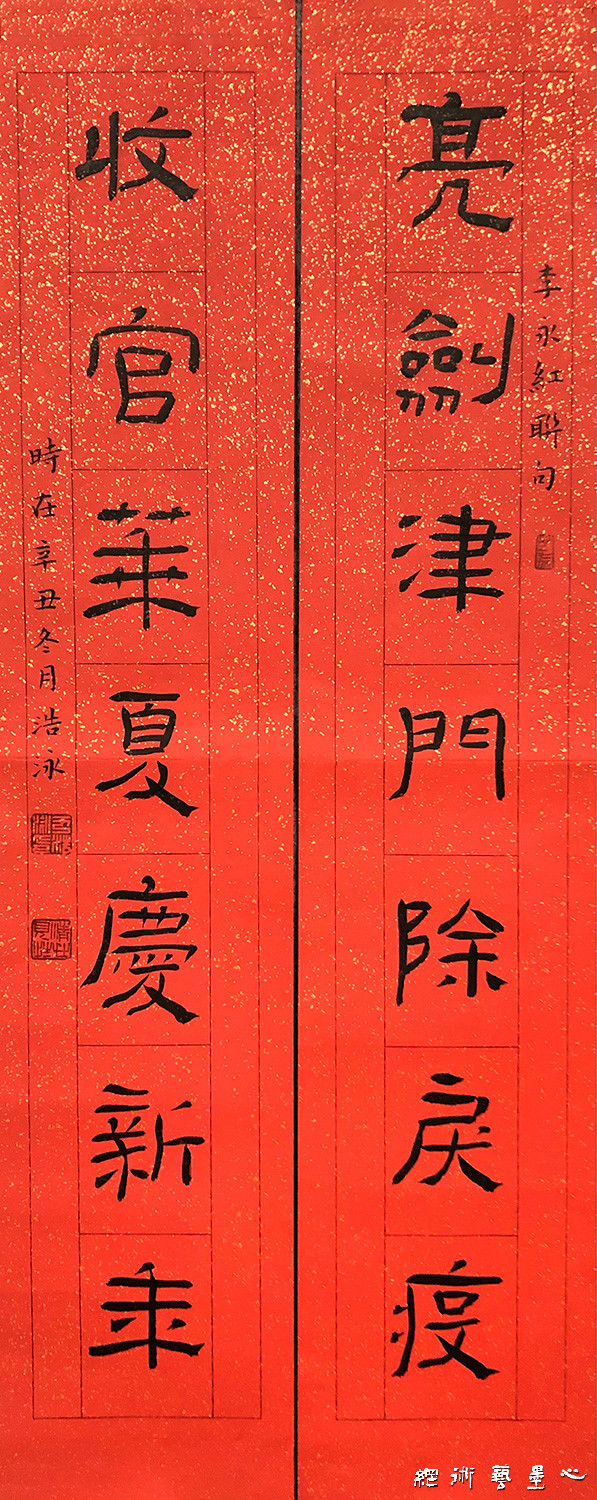 亮劍津門除戾疫
李永紅聯句
收官華夏慶新年
時在辛丑冬月浩泳
心墨藝術網